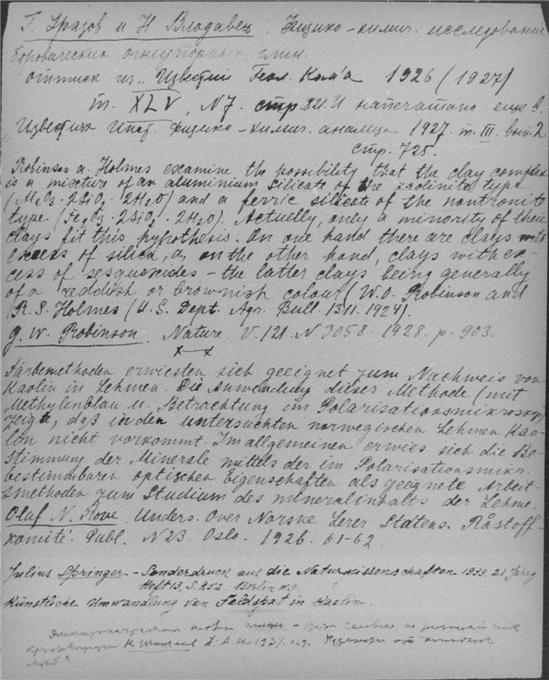 Г. Уразов и Н. Влодавец. Физико-химич. исследование
боровических огнеупорных глин.
оттиск из „Известий Геол. Ком'а 1926 (1927)
т. XLV, N 7. стр. 821. И напечатано еще в
„Известиях Инст. физико-химич. анализа 1927. т. III. вып. 2
стр. 725.
Robinson a. Holmes examine the possibility that the clay complex
is a mixture of an aluminium silicate of the kaolinite type
(Al2O3 · 2SiO2 · 2H2O) and a ferric silicate of the nontronite
type (Fe2O3 · 2SiO2 · 2H2O). Actually, only a minority of their
clays fit this hypothesis. On one hand there are clays with
excess of silica, a, on the other hand, clays with ex-
cess of sesquioxides - the latter clays being generally
of a reddish or brownish colour (W. O. Robinson and
R. S. Holmes (U. S. Dept. Agr. Bull. 1311. 1924).
G. W. Robinson. Nature. V. 121. N 3058. 1928. p. 903.
x—x
Färbemethoden erwiesen sich geeignet zum Nachweis von
Kaolin in Lehmen. Die Anwendung dieser Methode (mit
Methylenblau u. Betrachtung im Polarisationsmikroskop)
zeigt, daß in den untersuchten norwegischen Lehmen Kao-
lin nicht vorkommt. Im allgemeinen erwies sich die Be-
stimmung der Minerale mittels der im Polarisationsmikr.
bestimmbaren optischen Eigenschaften als geeignete Arbeit-
smethoden zum Studium des Mineralinhalts der Lehme.
Olaf N. Rove. Unders. Over Norske Lerer Statens. Råstoff-
komité. Publ. N 23. Oslo. 1926. 61-62.
Julius Springer - Sonderdruck aus die Naturwissenschaften 1933. 21. Jahrg
Heft 13, S. 252. Berlin
Künstliche Umwandlung von Feldspat in Kaolin.
1937